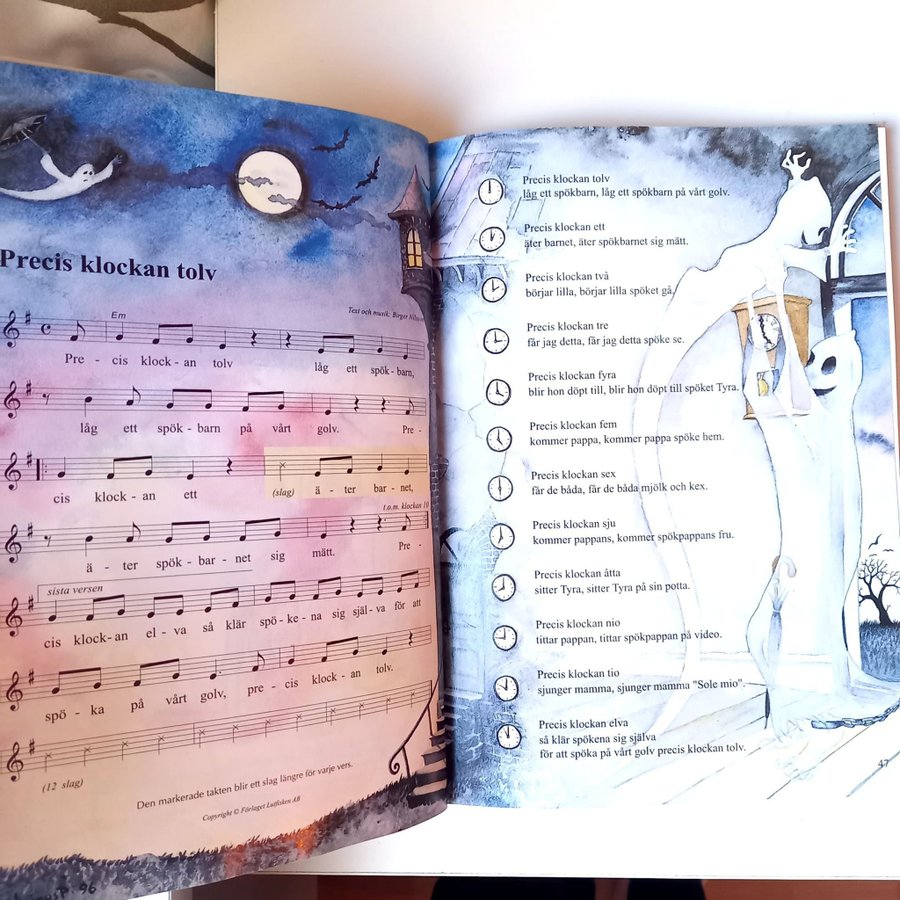 Precis klockan tolv
Text och musik: Birger
Em
Pre - cis klock - an tolv låg ett spök - barn,
låg ett spök - barn på vårt golv. Pre -
cis klock - an ett (slag) ä - ter bar - net,
t.o.m. klockan 10
ä - ter spök - bar - net sig mätt. Pre -
sista versen
cis klock - an el - va så klär spö - ke - na sig själ - va för att
spö - ka på vårt golv, pre - cis klock - an tolv.
(12 slag)
Den markerade takten blir ett slag längre för varje vers.
Copyright © Förlaget Lutfisken AB
96
Precis klockan tolv
låg ett spökbarn, låg ett spökbarn på vårt golv.
Precis klockan ett
äter barnet, äter spökbarnet sig mätt.
Precis klockan två
börjar lilla, börjar lilla spöket gå.
Precis klockan tre
får jag detta, får jag detta spöke se.
Precis klockan fyra
blir hon döpt till, blir hon döpt till spöket Tyra.
Precis klockan fem
kommer pappa, kommer pappa spöke hem.
Precis klockan sex
får de båda, får de båda mjölk och kex.
Precis klockan sju
kommer pappans, kommer spökpappans fru.
Precis klockan åtta
sitter Tyra, sitter Tyra på sin potta.
Precis klockan nio
tittar pappan, tittar spökpappan på video.
Precis klockan tio
sjunger mamma, sjunger mamma "Sole mio".
Precis klockan elva
så klär spökena sig själva
för att spöka på vårt golv precis klockan tolv.
47